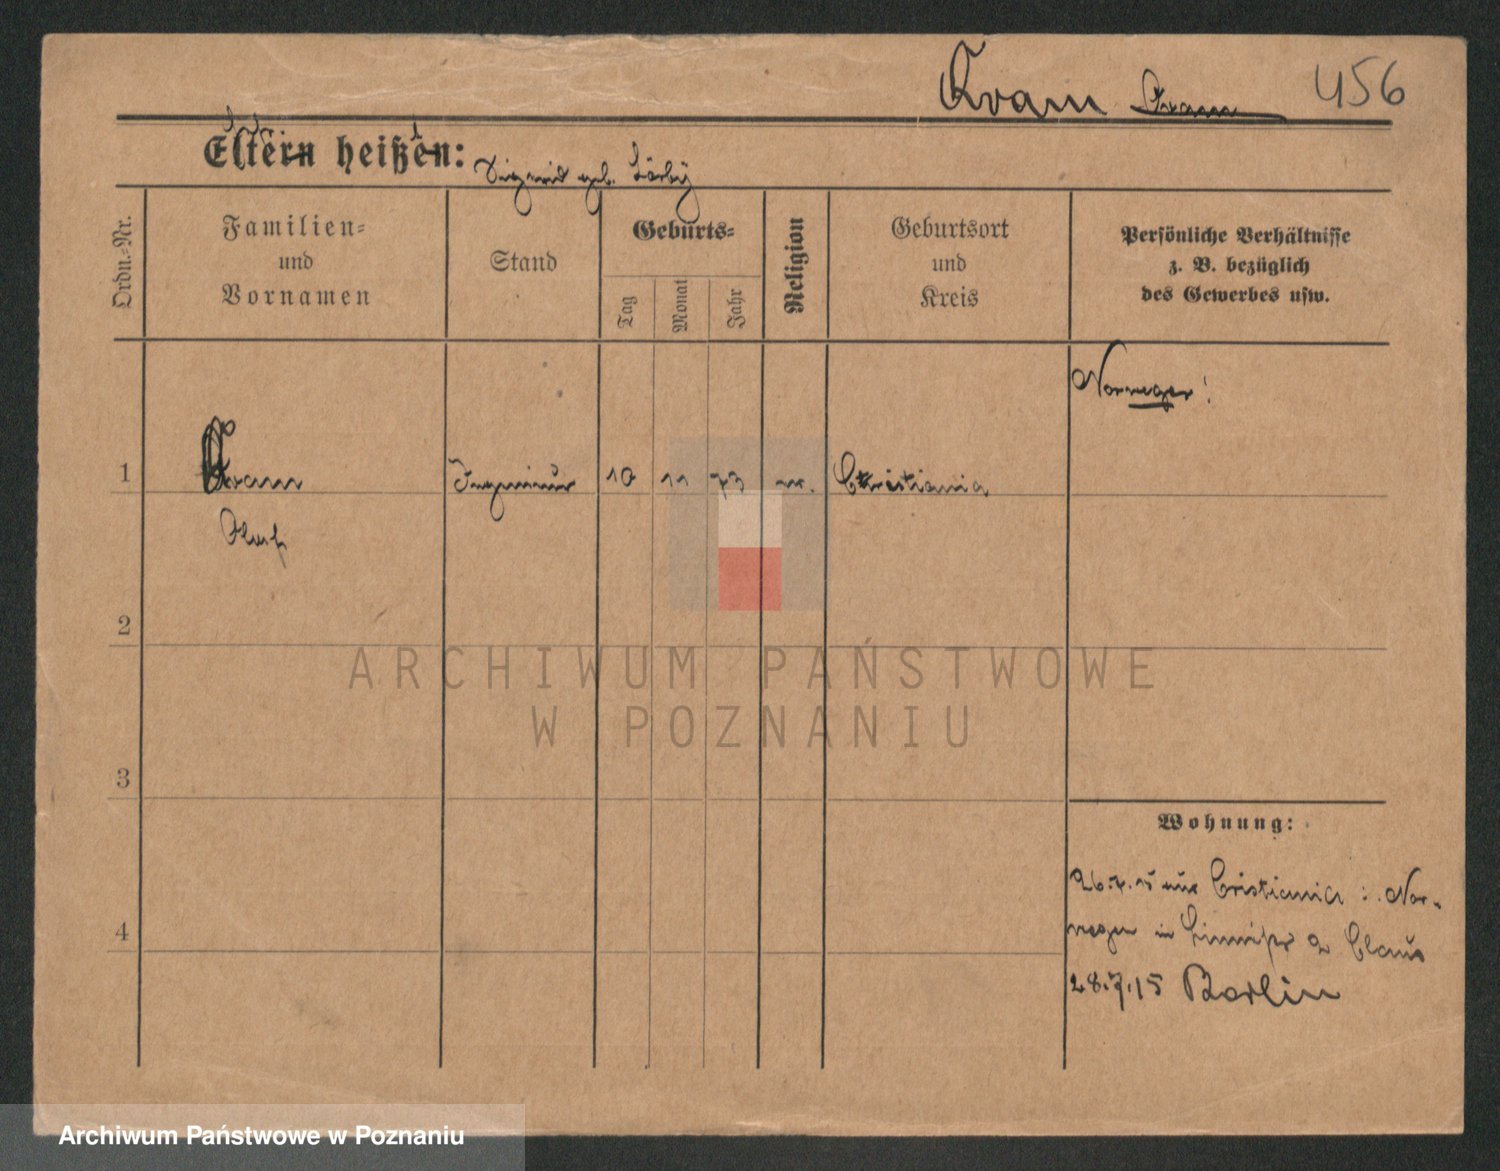 Kvam Kvam 456
Eltern heißen: Sigrid geb.
Ordn.-Nr.
Familien-
und
Vornamen
Stand
Geburts-
Tag
Monat
Jahr
Religion
Geburtsort
und
Kreis
Persönliche Verhältnisse
z. B. bezüglich
des Gewerbes usw.
Norweger!
1 Kvam Ingenieur 10 11 73 Christiania
Oluf
2
3
4
Wohnung:
26.7.15 aus Cristiania : Nor-
wegen in 2 Claus
28.7.15 Berlin
ARCHIWUM PAŃSTWOWE
W POZNANIU
Archiwum Państwowe w Poznaniu